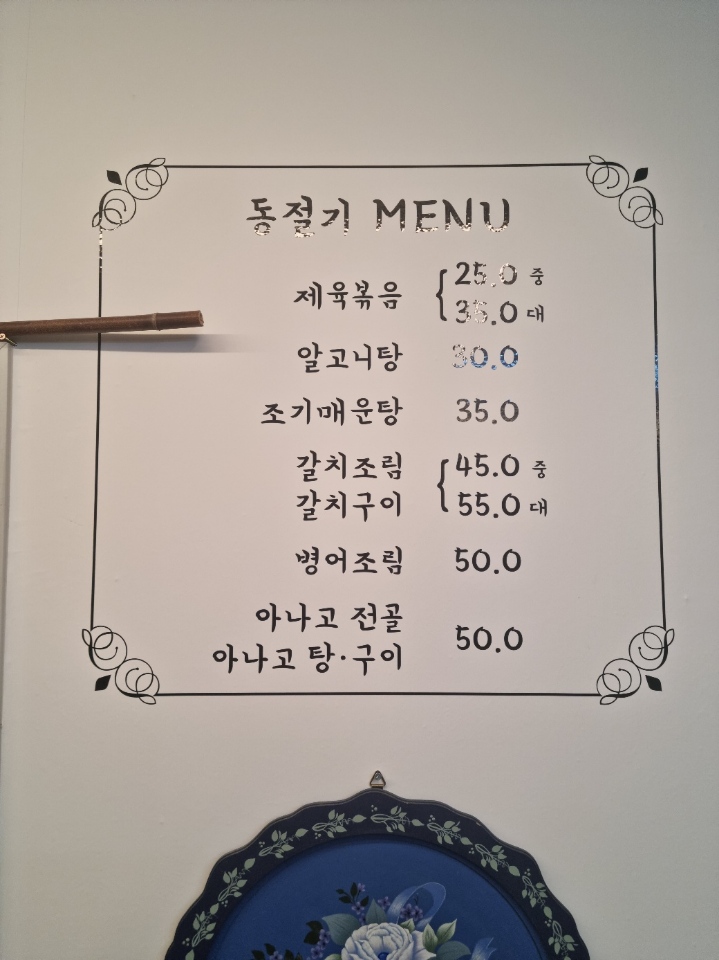 동절기 MENU
제육볶음 { 25.0 중
35.0 대
알고니탕 30.0
조기매운탕 35.0
갈치조림 { 45.0 중
갈치구이 55.0 대
병어조림 50.0
아나고 전골
아나고 탕·구이 50.0